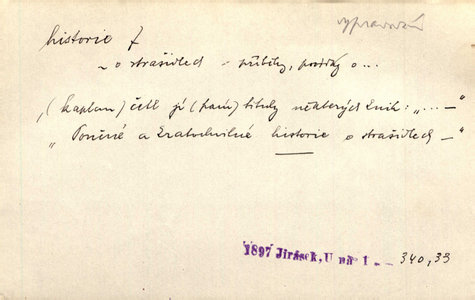 vypravování
historie f
~ o strašidlech - příběhy, povídky o...
„(kaplan) četl jí (paní) tituly některých knih: „... —"
„Poučné a kratochvilné historie o strašidlech —"
1897 Jirásek, U nás 1 - - 340,35